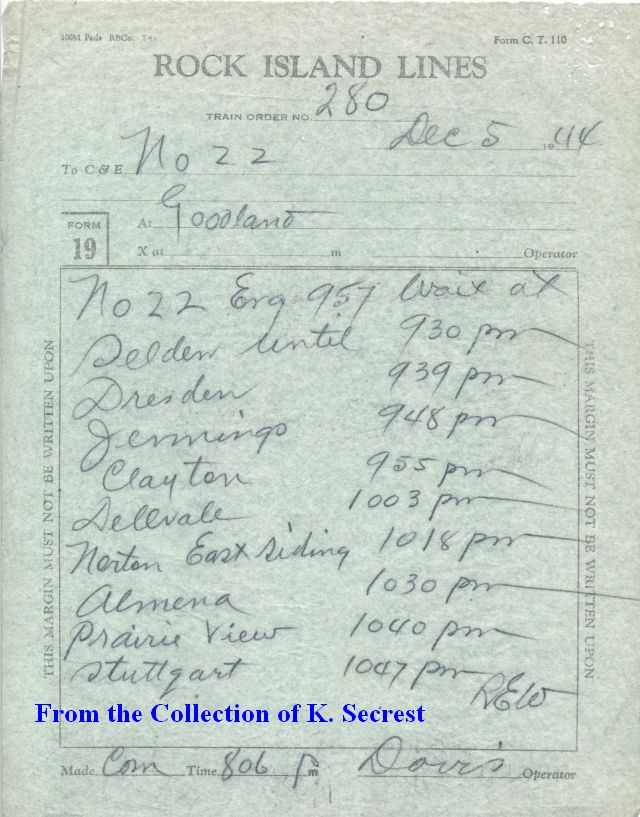 100M Pads RBCo.
Form C. T. 110
ROCK ISLAND LINES
TRAIN ORDER NO. 280
Dec 5 1944
To C & E No 22
FORM 19
At Goodland
X at m Operator
No 22 Eng 957 wait at
Selden until 930 pm
Dresden 939 pm
Jennings 948 pm
Clayton 955 pm
Dellvale 1003 pm
Norton East siding 1018 pm
Almena 1030 pm
Prairie View 1040 pm
Stuttgart 1047 pm
REW
THIS MARGIN MUST NOT BE WRITTEN UPON
THIS MARGIN MUST NOT BE WRITTEN UPON
From the Collection of K. Secrest
Made Com Time 806 P m Davis Operator